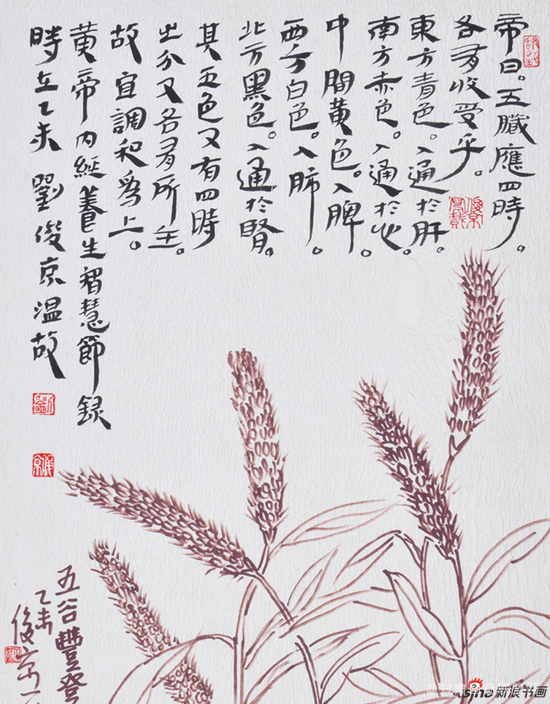 帝曰。五臟應四時。
各有收受乎。
東方青色。入通於肝。
南方赤色。入通於心。
中間黃色。入脾。
西方白色。入肺。
北方黑色。入通於腎。
其五色又有四時
之分又各有所主。
故宜調和爲上。
黄帝内經養生智慧節録
時在乙未 劉俊京温故
五谷豐登
乙未
俊京
sina新浪书画